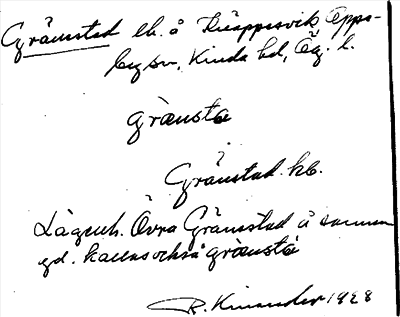 Gränstad lh. å Knappsvik Opps-
by sn, Kinda hd, Ög. l.
grænsta
Gränstad. kb.
Lägenh. Övra Gränstad å samma
gd. kallas också grænsta
R. Kinander 1928